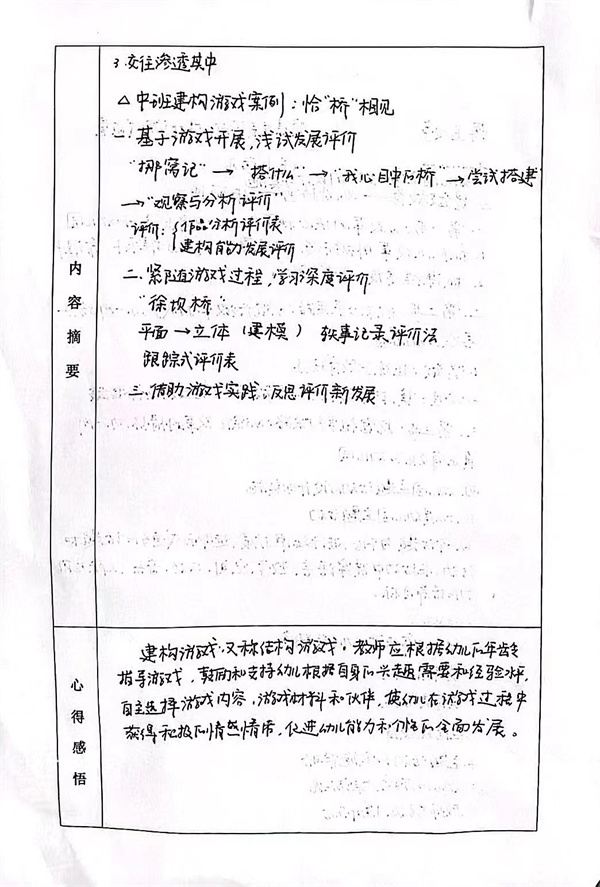 内容摘要
3. 交往渗透其中
△ 中班建构游戏案例：恰"桥"相见
一. 基于游戏开展，浅试发展评价
"挪窝记" → "搭什么" → "我心目中的桥" → 尝试搭建
→ "观察与分析评价"
评价：{作品分析评价表
建构能力发展评价
二. 紧随游戏过程，学习深度评价
"徐坝桥"
平面 → 立体（建模） 轶事记录评价法
跟踪式评价表
三. 借助游戏实践，反思评价新发展
心得感悟
建构游戏又称结构游戏。教师应根据幼儿的年龄
指导游戏，鼓励和支持幼儿根据自身的兴趣、需要和经验水平，
自主选择游戏内容、游戏材料和伙伴，使幼儿在游戏过程中
获得积极的情感情席，促进幼儿能力和个性的全面发展。